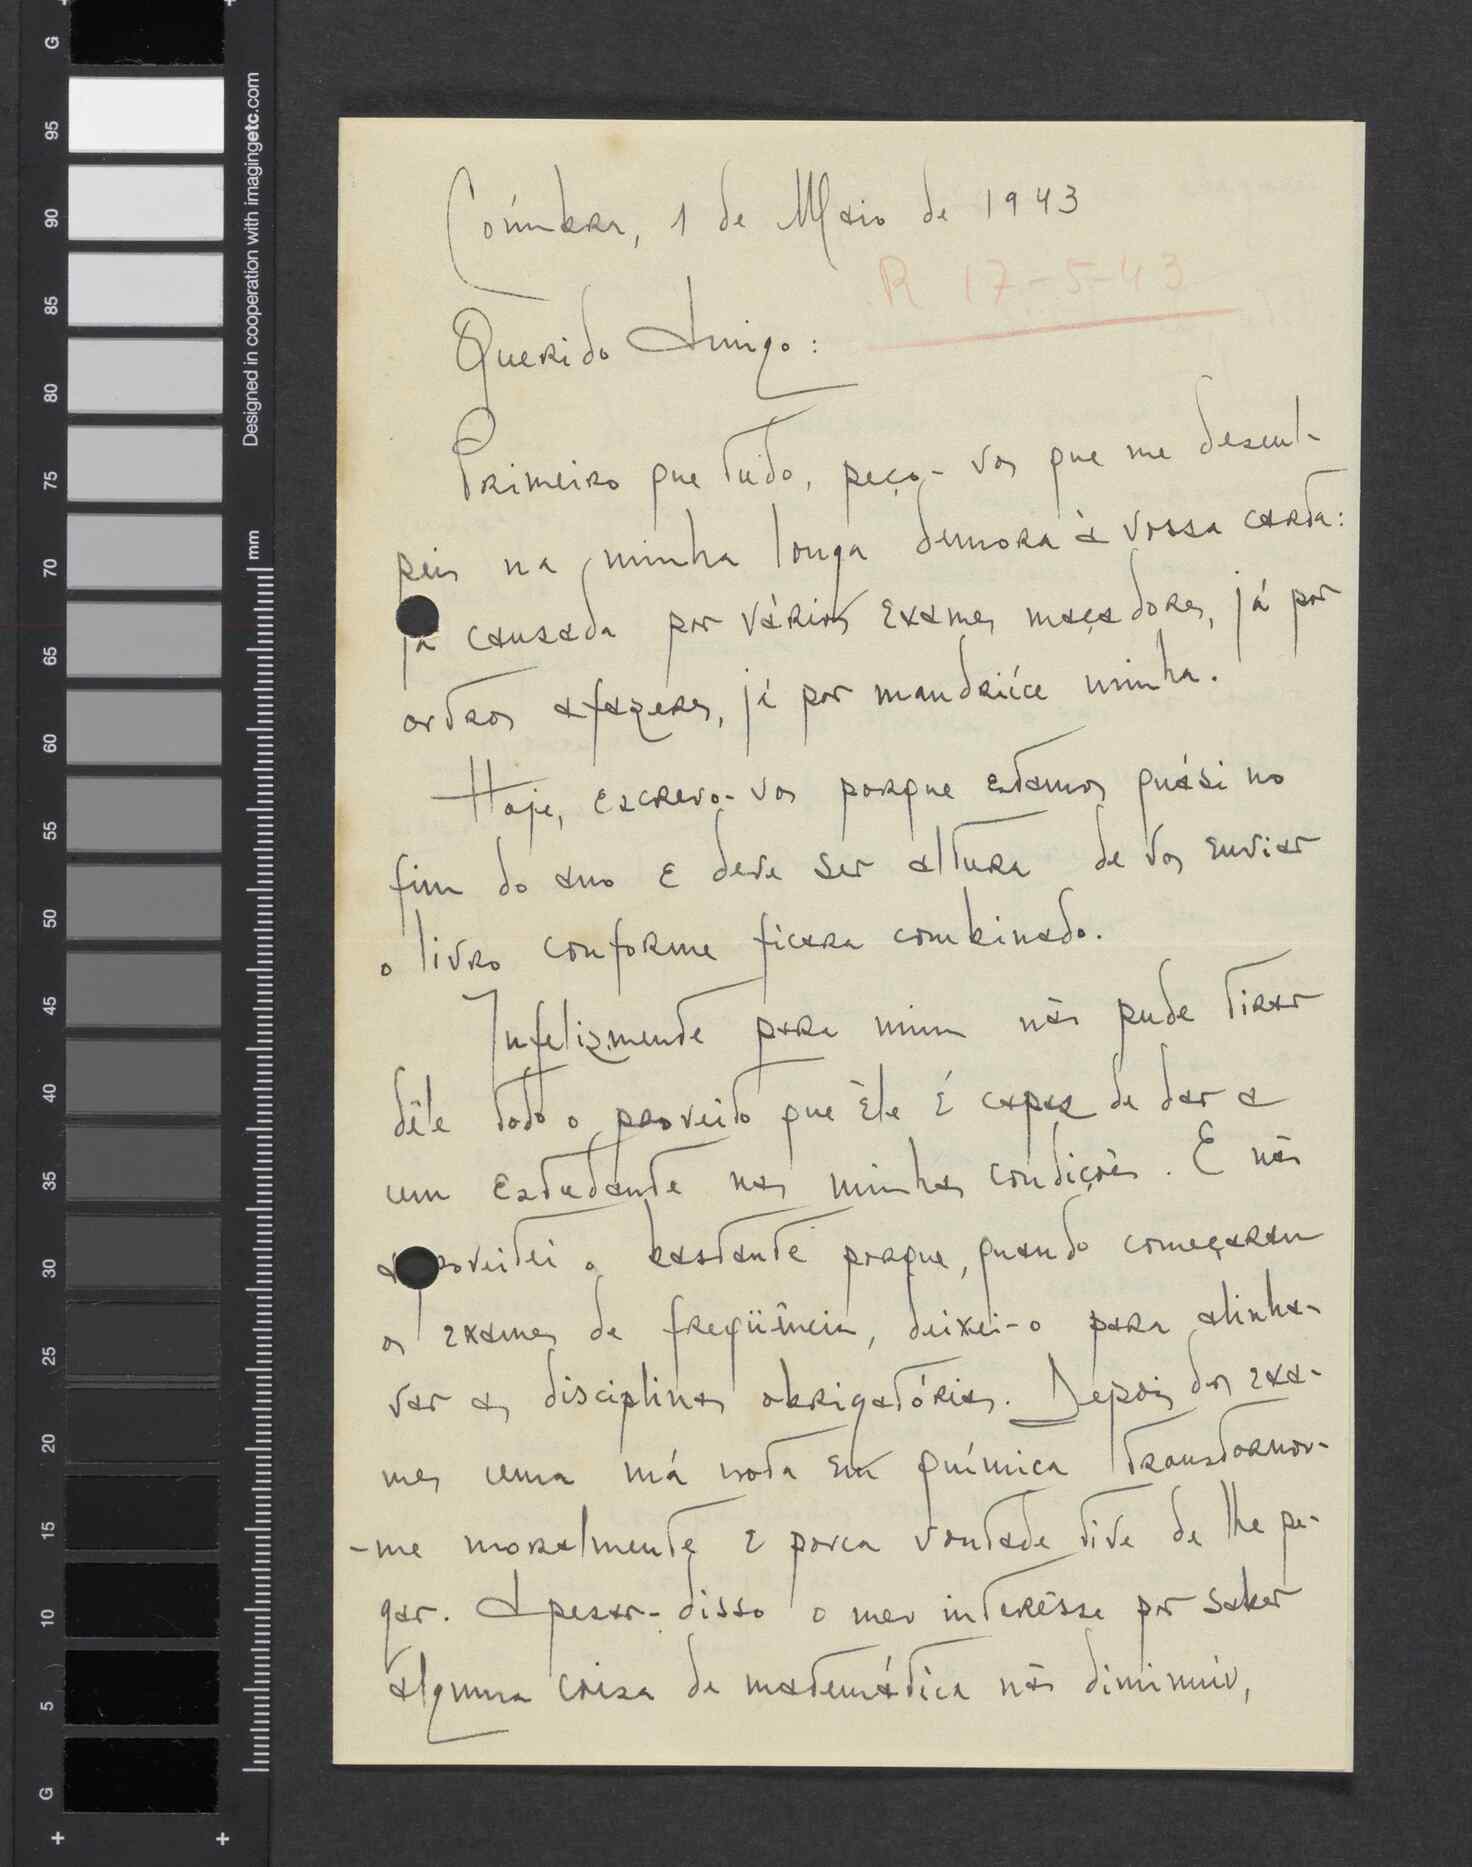 Coímbra, 1 de Maio de 1943
R 17-5-43
Querido Amigo:
Primeiro que tudo, peço-vos que me descul-
peis na minha longa demora à vossa carta:
já causada por vários exames maçadores, já por
outros afazeres, já por mandriíce minha.
Hoje, escrevo-vos porque estamos quási no
fim do ano e deve ser altura de vos enviar
o livro conforme ficara combinado.
Infelizmente para mim não pude tirar
dêle todo o proveito que êle é capaz de dar a
um estudante nas minhas condições. E não
aproveitei o bastante porque, quando começaram
os exames de freqüência, deixei-o para alinha-
var as disciplinas obrigatórias. Depois dos exa-
mes uma má nota em química transtornou-
-me moralmente e pouca vontade tive de lhe pe-
gar. Apesar-disso o meu interêsse por saber
alguma coisa de matemática não diminuíu,
G
95
90
85
80
75
70
65
60
55
50
45
40
35
30
25
20
15
10
5
G
mm
Designed in cooperation with imagingetc.com